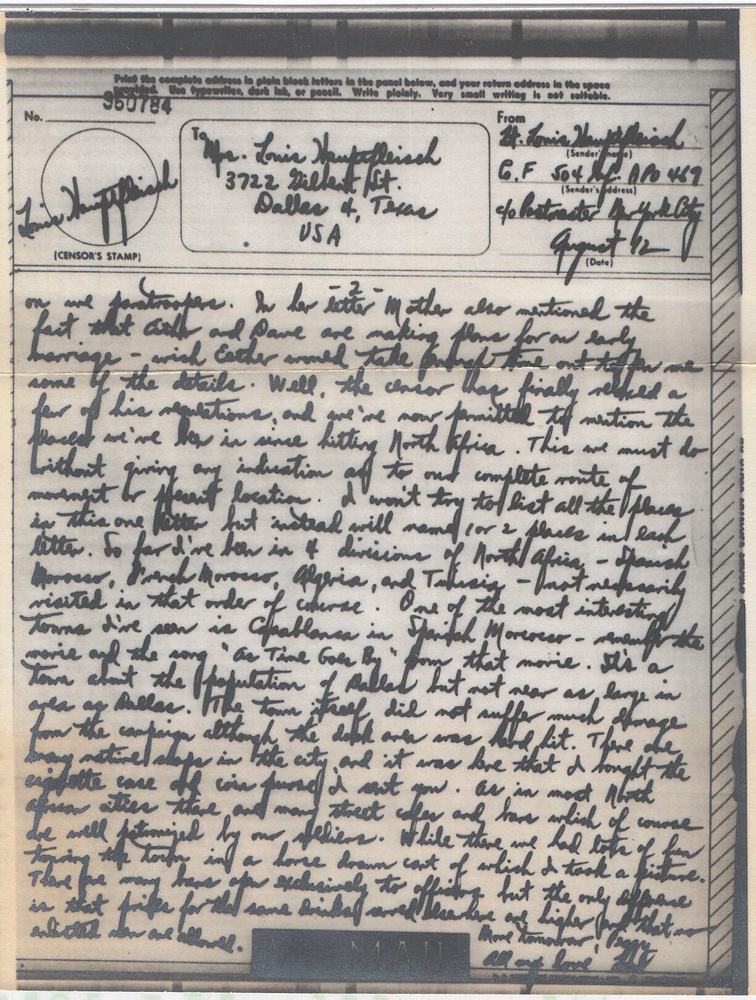 Print the complete address in plain block letters in the panel below, and your return address in the space
provided. Use typewriter, dark ink, or pencil. Write plainly. Very small writing is not suitable.
No.
350784
Louis Hauptfleisch
(CENSOR'S STAMP)
To
Mrs. Louis Hauptfleisch
3722 Gilbert St.
Dallas 4, Texas
USA
From
Lt. Louis Hauptfleisch
(Sender's name)
C.F 504 Inf. APO 469
(Sender's address)
c/o Postmaster New York City
August 12
(Date)
-2-
on we paratroopers. In her letter Mother also mentioned the
fact that Esther and Dave are making plans for an early
marriage - wish Esther would take enough time out to pen me
some of the details. Well, the censor has finally relaxed a
few of his regulations, and we've now permitted to mention the
places we've been in since hitting North Africa. This we must do
without giving any indication as to our complete route of
movement or present location. I won't try to list all the places
in this one letter but instead will name 1 or 2 places in each
letter. So far I've been in 4 divisions of North Africa - Spanish
Morosso, French Morosso, Algeria, and Tunisia - not necessarily
visited in that order of course. One of the most interesting
towns I've seen is Casablansa in Spanish Morocosso - remember the
movie and the song "As Time Goes By" from that movie. It's a
town about the population of Dallas but not near as large in
area as Dallas. The town itself did not suffer much damage
from the campaign although the dock area was hard hit. There are
many native shops in the city and it was here that I bought the
cigarette case and coin purse I sent you. As in most North
African cities there are many street cafes and bars which of course
are well patronized by our soldiers. While there we had lots of fun
touring the town in a horse drawn cart of which I took a picture.
There are many bars open exclusively to officers but the only difference
is that prices for the same drinks served elsewhere are higher and that no
enlisted men are allowed.
More tomorrow, Peggy
All my love,
V-MAIL